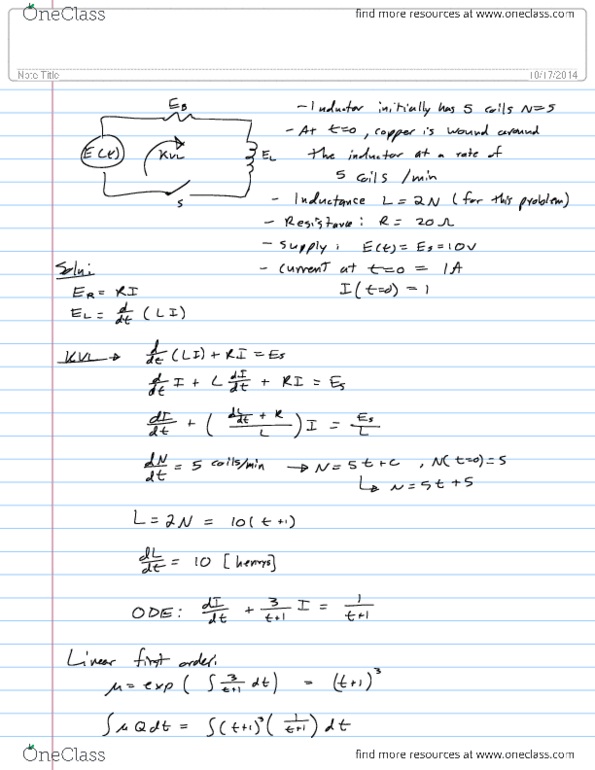 OneClass
find more resources at www.oneclass.com
Note Title
10/17/2014
E_R
E(t)
KVL
E_L
S
- Inductor initially has 5 coils N=5
- At t=0, copper is wound around
the inductor at a rate of
5 coils /min
- Inductance L = 2N (for this problem)
- Resistance: R = 20Ω
- Supply: E(t) = Es = 10V
- current at t=0 = 1A
I(t=0) = 1
Soln:
E_R = RI
E_L = d/dt (LI)
KVL → d/dt (LI) + RI = Es
d/dt I + L dI/dt + RI = Es
dI/dt + ( (dL/dt + R)/L ) I = Es/L
dN/dt = 5 coils/min → N = 5t + C , N(t=0) = 5
↳ N = 5t + 5
L = 2N = 10(t+1)
dL/dt = 10 [henrys]
ODE: dI/dt + 3/(t+1) I = 1/(t+1)
Linear first order.
μ = exp ( ∫ 3/(t+1) dt ) = (t+1)³
∫ μ Q dt = ∫ (t+1)³ ( 1/(t+1) ) dt
OneClass
find more resources at www.oneclass.com